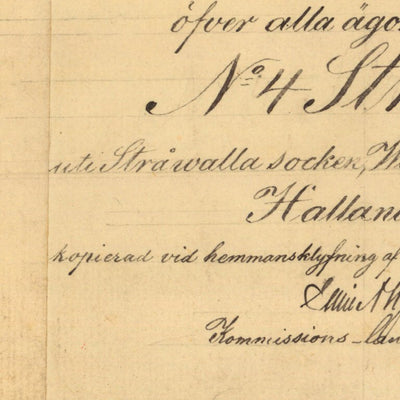 öfver alla ägo
No. 4 St
uti Stråwalla socken, W
Halland
kopierad vid hemmansklyfning af
Kommissions-